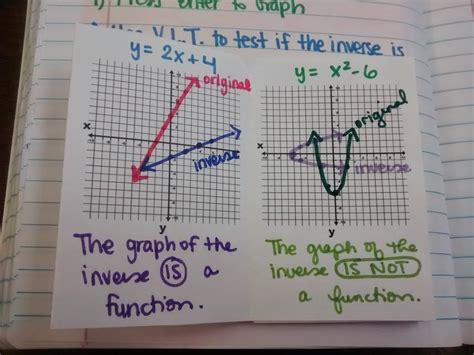 1) Press enter to Graph
V.I.T. to test if the inverse is
y = 2x+4
original
x
inverse
y
The graph of the
inverse IS a
function.
y = x²-6
original
x
inverse
y
The graph of the
inverse IS NOT
a function.